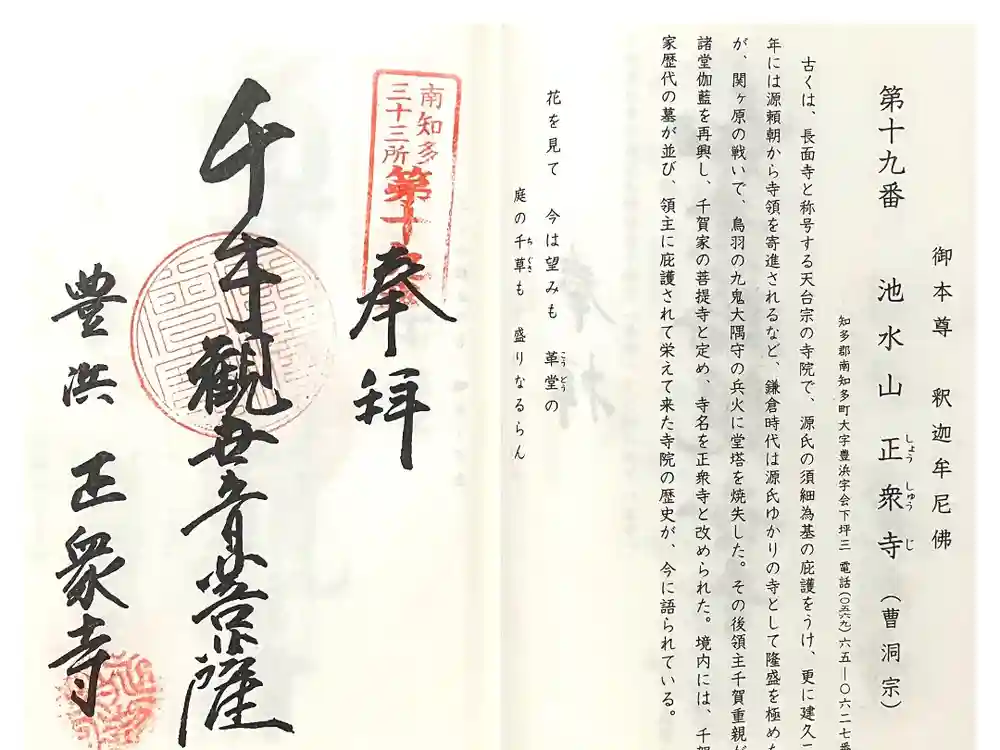 御本尊 釈迦牟尼佛
第十九番 池水山 正衆寺 (曹洞宗)
しょう しゅう じ
知多郡南知多町大字豊浜字会下坪三 電話(〇五六九)六五―〇六二七番
古くは、長面寺と称号する天台宗の寺院で、源氏の須細為基の庇護をうけ、更に建久二
年には源頼朝から寺領を寄進されるなど、鎌倉時代は源氏ゆかりの寺として隆盛を極めた
が、関ヶ原の戦いで、鳥羽の九鬼大隅守の兵火に堂塔を焼失した。その後領主千賀重親が
諸堂伽藍を再興し、千賀家の菩提寺と定め、寺名を正衆寺と改められた。境内には、千賀
家歴代の墓が並び、領主に庇護されて栄えて来た寺院の歴史が、今に語られている。
花を見て 今は望みも 革堂の
こう どう
庭の千草も 盛りなるらん
ち ぐさ
南知多
三十三所
第十
奉拝
千手観世音菩薩
豊浜 正衆寺